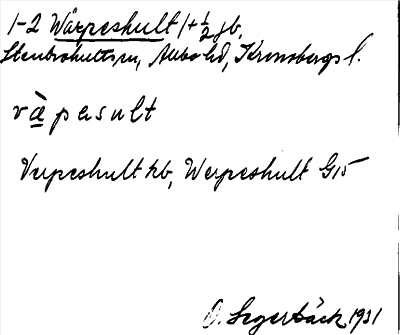 1-2 Wärpeshult 1+½ jb.
Stenbrohults sn, Allbo hd, Kronobergs l.
vä̀pasult
Verpeshult kb, Werpeshult G15
O. Segerbäck 1931